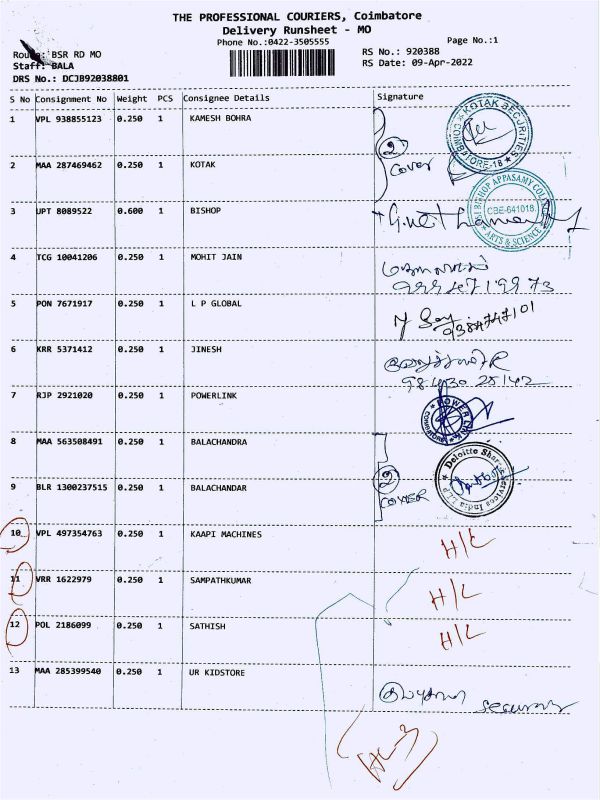 THE PROFESSIONAL COURIERS, Coimbatore
Delivery Runsheet - MO
Phone No.:0422-3505555
Page No.:1
Route: BSR RD MO
RS No.: 920388
Staff: BALA
RS Date: 09-Apr-2022
DRS No.: DCJB92038801
S No Consignment No Weight PCS Consignee Details Signature
1 VPL 938855123 0.250 1 KAMESH BOHRA
KOTAK SECURITIES
COIMBATORE-18
2 cover
2 MAA 287469462 0.250 1 KOTAK
BISHOP APPASAMY COLLEGE
CBE-641018.
ARTS & SCIENCE
3 UPT 8089522 0.600 1 BISHOP
4 TCG 10041206 0.250 1 MOHIT JAIN
5 PON 7671917 0.250 1 L P GLOBAL
9384747101
6 KRR 5371412 0.250 1 JINESH
98430 28142
7 RJP 2921020 0.250 1 POWERLINK
8 MAA 563508491 0.250 1 BALACHANDRA
Deloitte Shared Services India LLP
2 cover
9 BLR 1300237515 0.250 1 BALACHANDAR
10 VPL 497354763 0.250 1 KAAPI MACHINES H/L
11 VRR 1622979 0.250 1 SAMPATHKUMAR H/L
12 POL 2186099 0.250 1 SATHISH H/L
13 MAA 285399540 0.250 1 UR KIDSTORE
security
HL-3